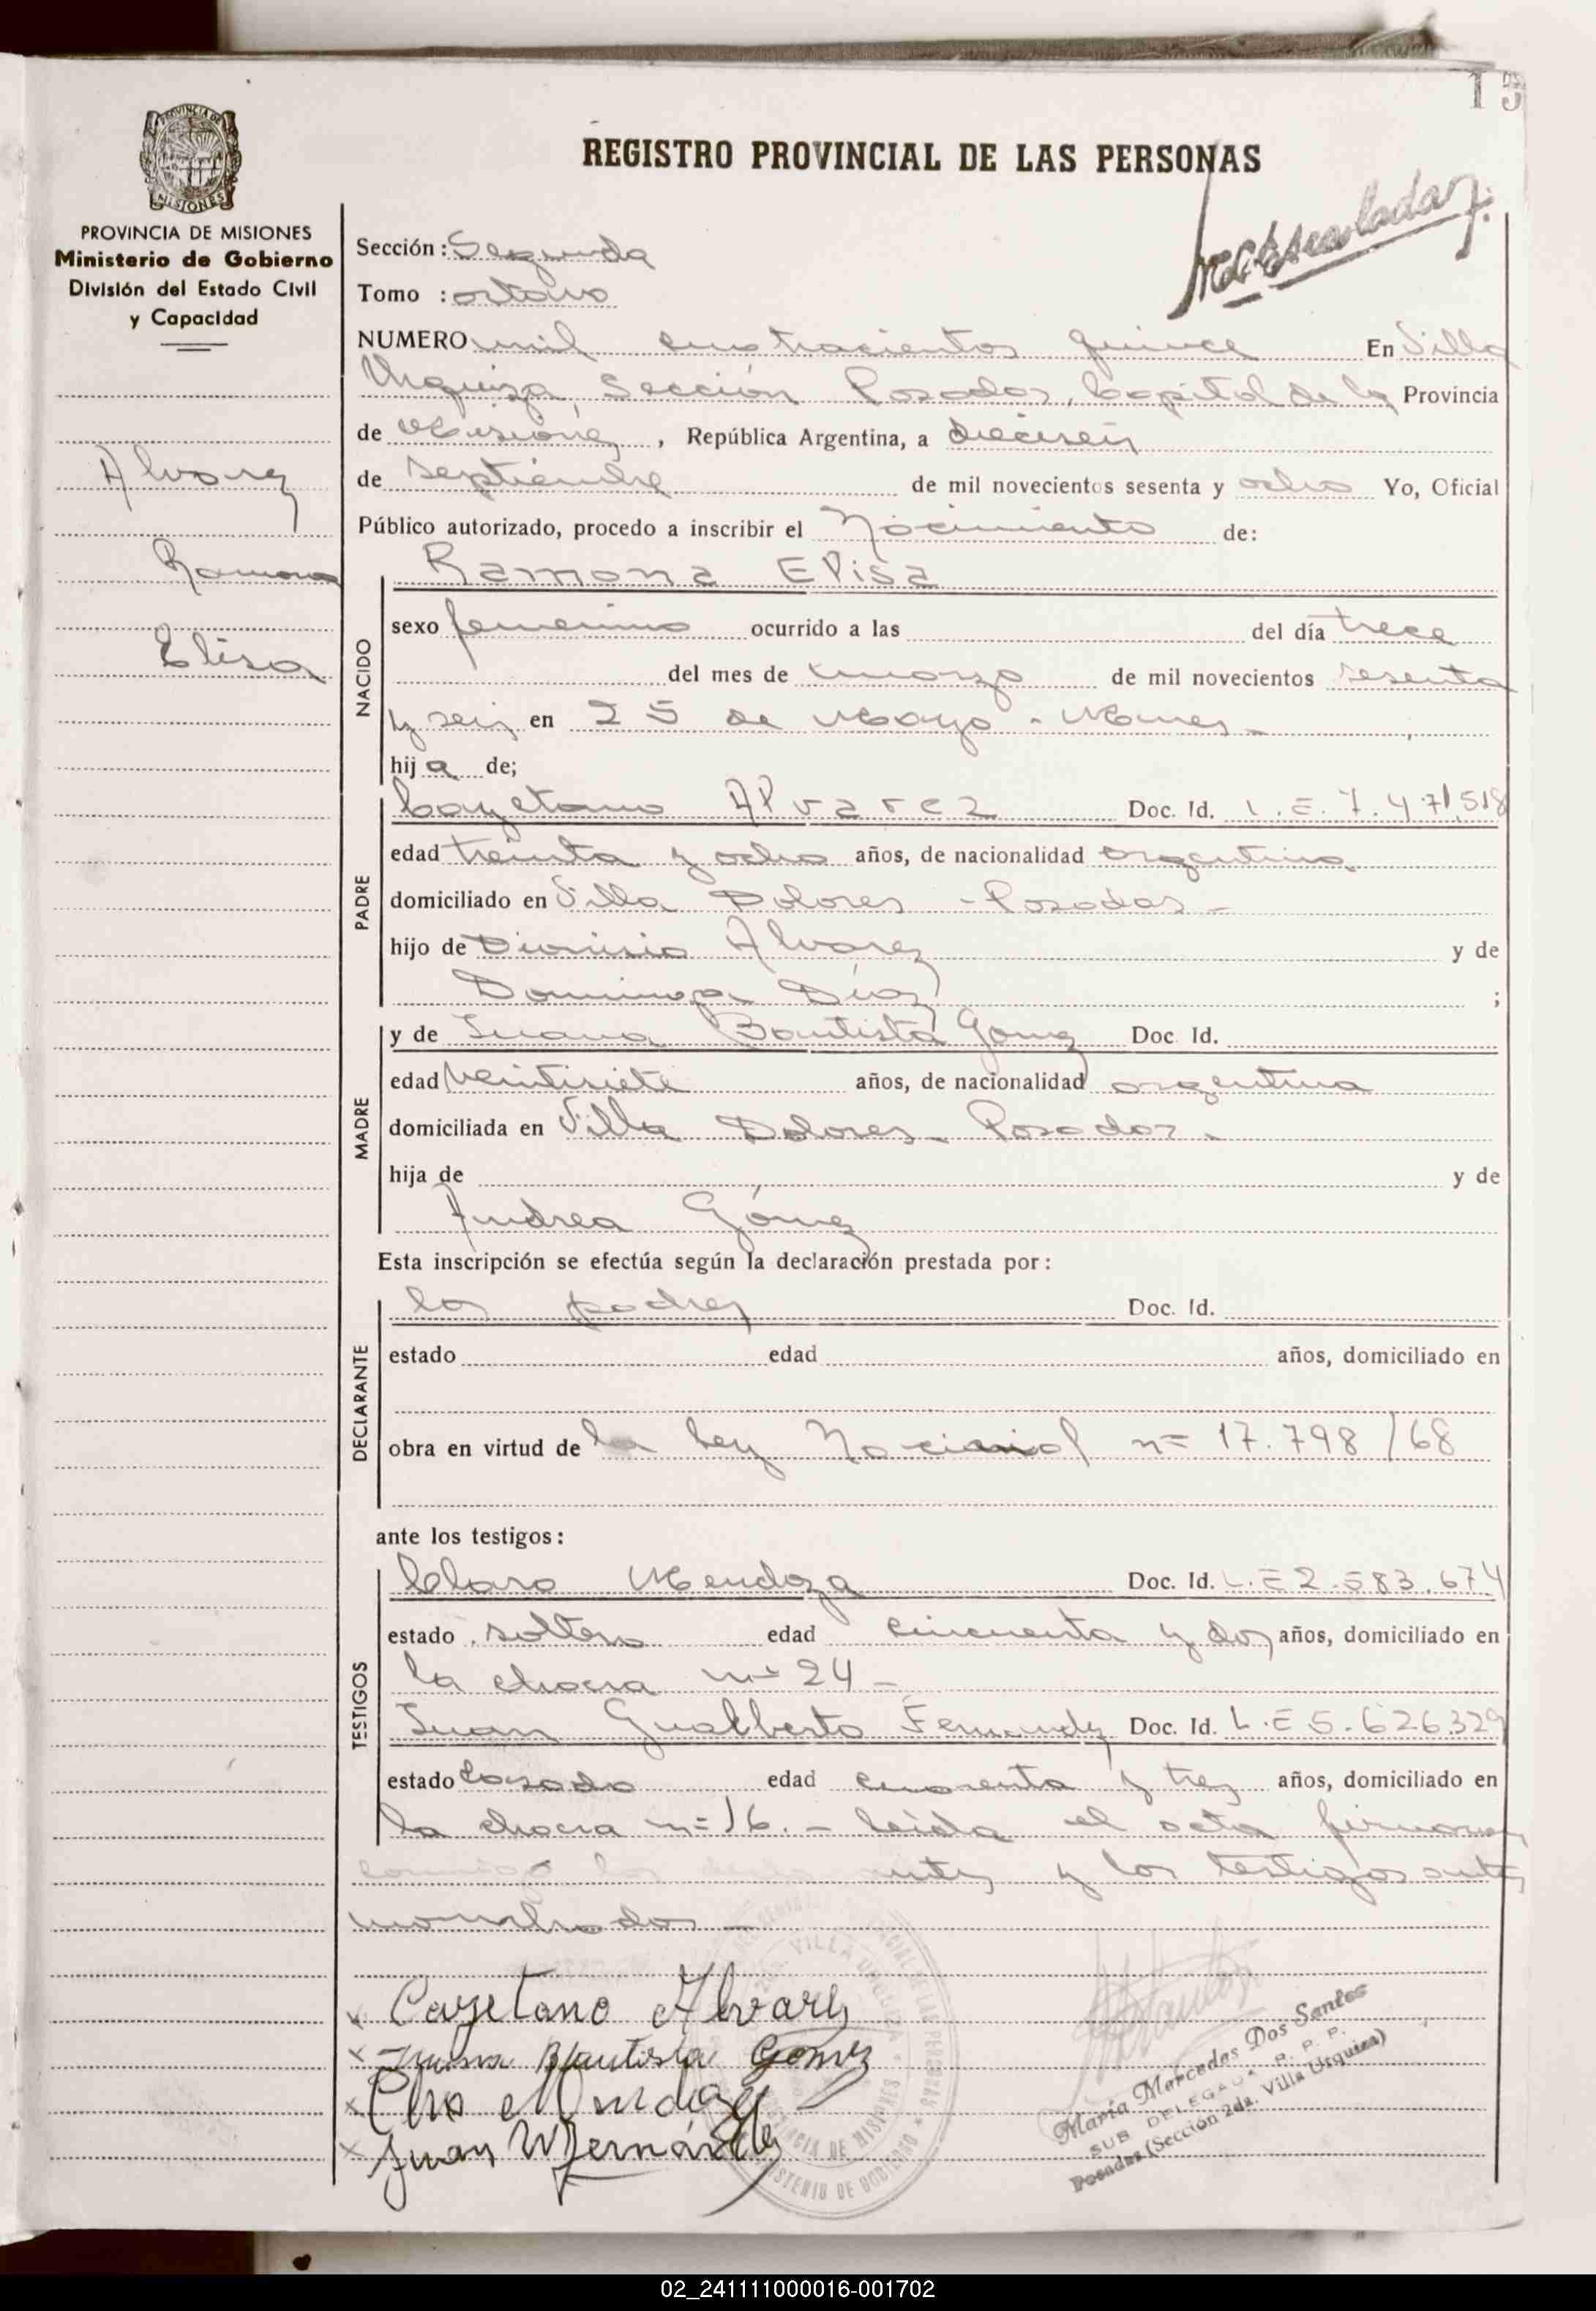 15
REGISTRO PROVINCIAL DE LAS PERSONAS
PROVINCIA DE MISIONES
Ministerio de Gobierno
División del Estado Civil
y Capacidad
Alvarez
Ramona
Elisa
Sección: Segunda
Tomo : octavo
NUMERO mil cuatrocientos quince En Villa
Urquiza, Sección Posadas, Capital de la Provincia
de Misiones, República Argentina, a dieciseis
de septiembre de mil novecientos sesenta y ocho Yo, Oficial
Público autorizado, procedo a inscribir el Nacimiento de:
NACIDO
Ramona Elisa
sexo femenino ocurrido a las del día trece
del mes de marzo de mil novecientos sesenta
y seis en 25 de Mayo - Mnes.
hij a de;
PADRE
Cayetano Alvarez Doc. Id. L.E. 7.471,518
edad treinta y ocho años, de nacionalidad argentina
domiciliado en Villa Dolores - Posadas -
hijo de Dionisio Alvarez y de
Dominga Díaz ;
MADRE
y de Juana Bautista Gomez Doc. Id.
edad veintisiete años, de nacionalidad argentina
domiciliada en Villa Dolores - Posadas -
hija de y de
Andrea Gómez
Esta inscripción se efectúa según la declaración prestada por:
DECLARANTE
los padres Doc. Id.
estado edad años, domiciliado en
obra en virtud de la Ley Nacional n= 17.798/68
ante los testigos:
TESTIGOS
Claro Mendoza Doc. Id. L.E 2.583.674
estado soltero edad cincuenta y dos años, domiciliado en
la chacra n= 24 -
Juan Gualberto Fernandez Doc. Id. L.E 5.626.329
estado casado edad cuarenta y tres años, domiciliado en
la chacra n= 16. - leida el acta firman
conmigo los y los testigos ante
Cayetano Alvarez
Juana Bautista Gomez
Juan Fernández
VILLA URQUIZA
MINISTERIO DE GOBIERNO
María Mercedes Dos Santos
SUB DELEGADA R. P. P.
Posadas (Sección 2da. Villa Urquiza)
02_241111000016-001702